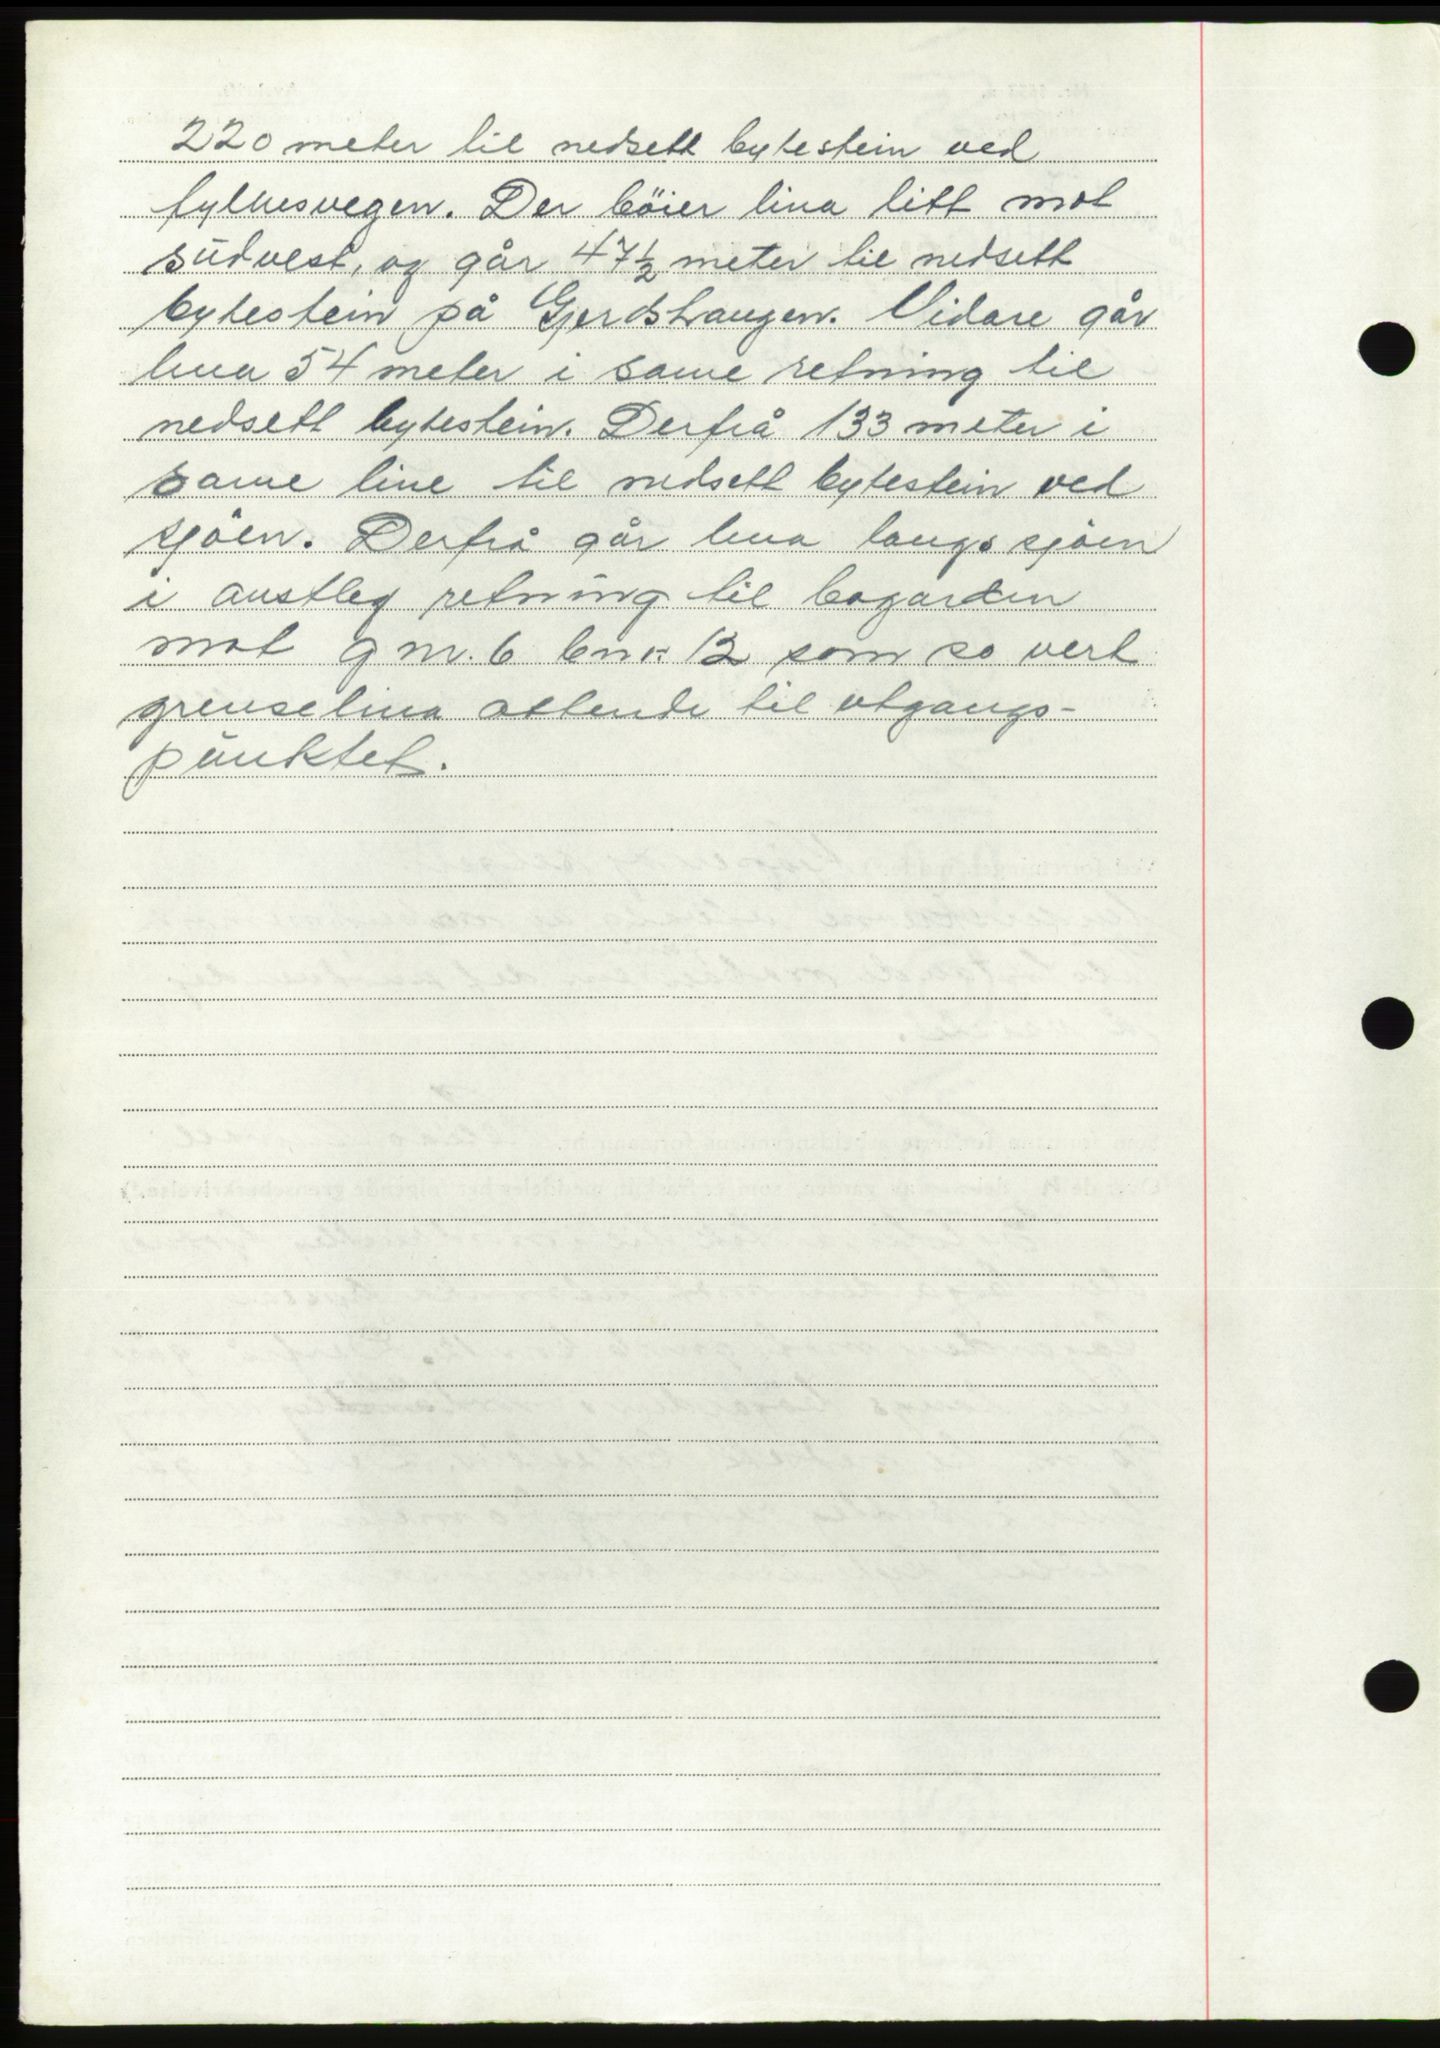 220 meter til nedsett bytestein ved
fylkesvegen. Der böier lina litt mot
südvest, og går 47½ meter til nedsett
bytestein på Gjerdshaugen. Vidare går
lina 54 meter i same retning til
nedsett bytestein. Derfrå 133 meter i
same line til nedsett bytestein ved
sjöen. Derfrå går lina langs sjöen
i austleg retning til bøgarden
mot gnr. 6 bnr. 12 som so vert
grenselina attende til utgangs-
pünktet.